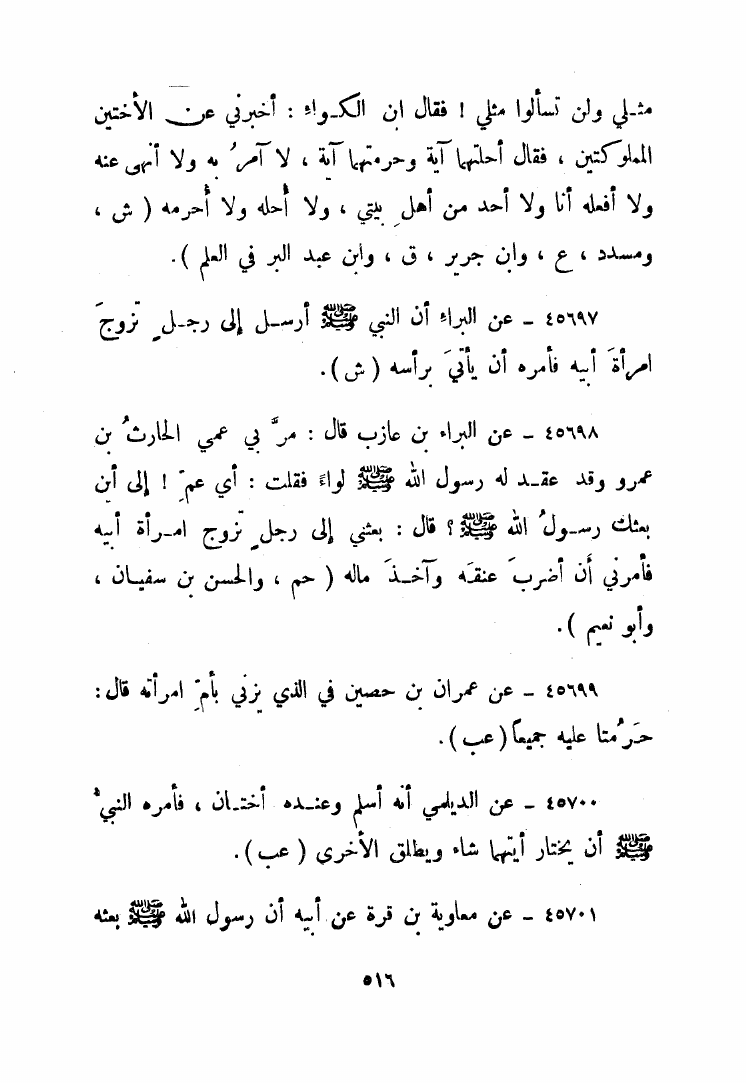 مثلي ولن تسألوا مثلي ! فقال ابن الكواء : أخبرني عن الأختين
المملوكتين ، فقال أحلتهما آية وحرمتهما آية ، لا آمرُ به ولا أنهى عنه
ولا أفعله أنا ولا أحد من أهلِ بيتي ، ولا أُحله ولا أُحرمه ( ش ،
ومسدد ، ع ، وابن جرير ، ق ، وابن عبد البر في العلم ).
٤٥٦٩٧ - عن البراء أن النبي ﷺ أرسل إلى رجلٍ تزوجَ
امرأةَ أبيه فأمره أن يأتيَ برأسه ( ش ).
٤٥٦٩٨ - عن البراء بن عازب قال : مرَّ بي عمي الحارثُ بن
عمرو وقد عقد له رسول الله ﷺ لواءً فقلت : أي عمِّ ! إلى أين
بعثك رسولُ الله ﷺ ؟ قال : بعثني إلى رجلٍ تزوج امرأة أبيه
فأمرني أن أضربَ عنقَه وآخذَ ماله ( حم ، والحسن بن سفيان ،
وأبو نعيم ).
٤٥٦٩٩ - عن عمران بن حصين في الذي يزني بأمِّ امرأته قال :
حَرُمتا عليه جميعاً ( عب ).
٤٥٧٠٠ - عن الديلمي أنه أسلم وعنده أختان ، فأمره النبيُّ
ﷺ أن يختار أيتهما شاء ويطلق الأخرى ( عب ).
٤٥٧٠١ - عن معاوية بن قرة عن أبيه أن رسول الله ﷺ بعثه
٥١٦